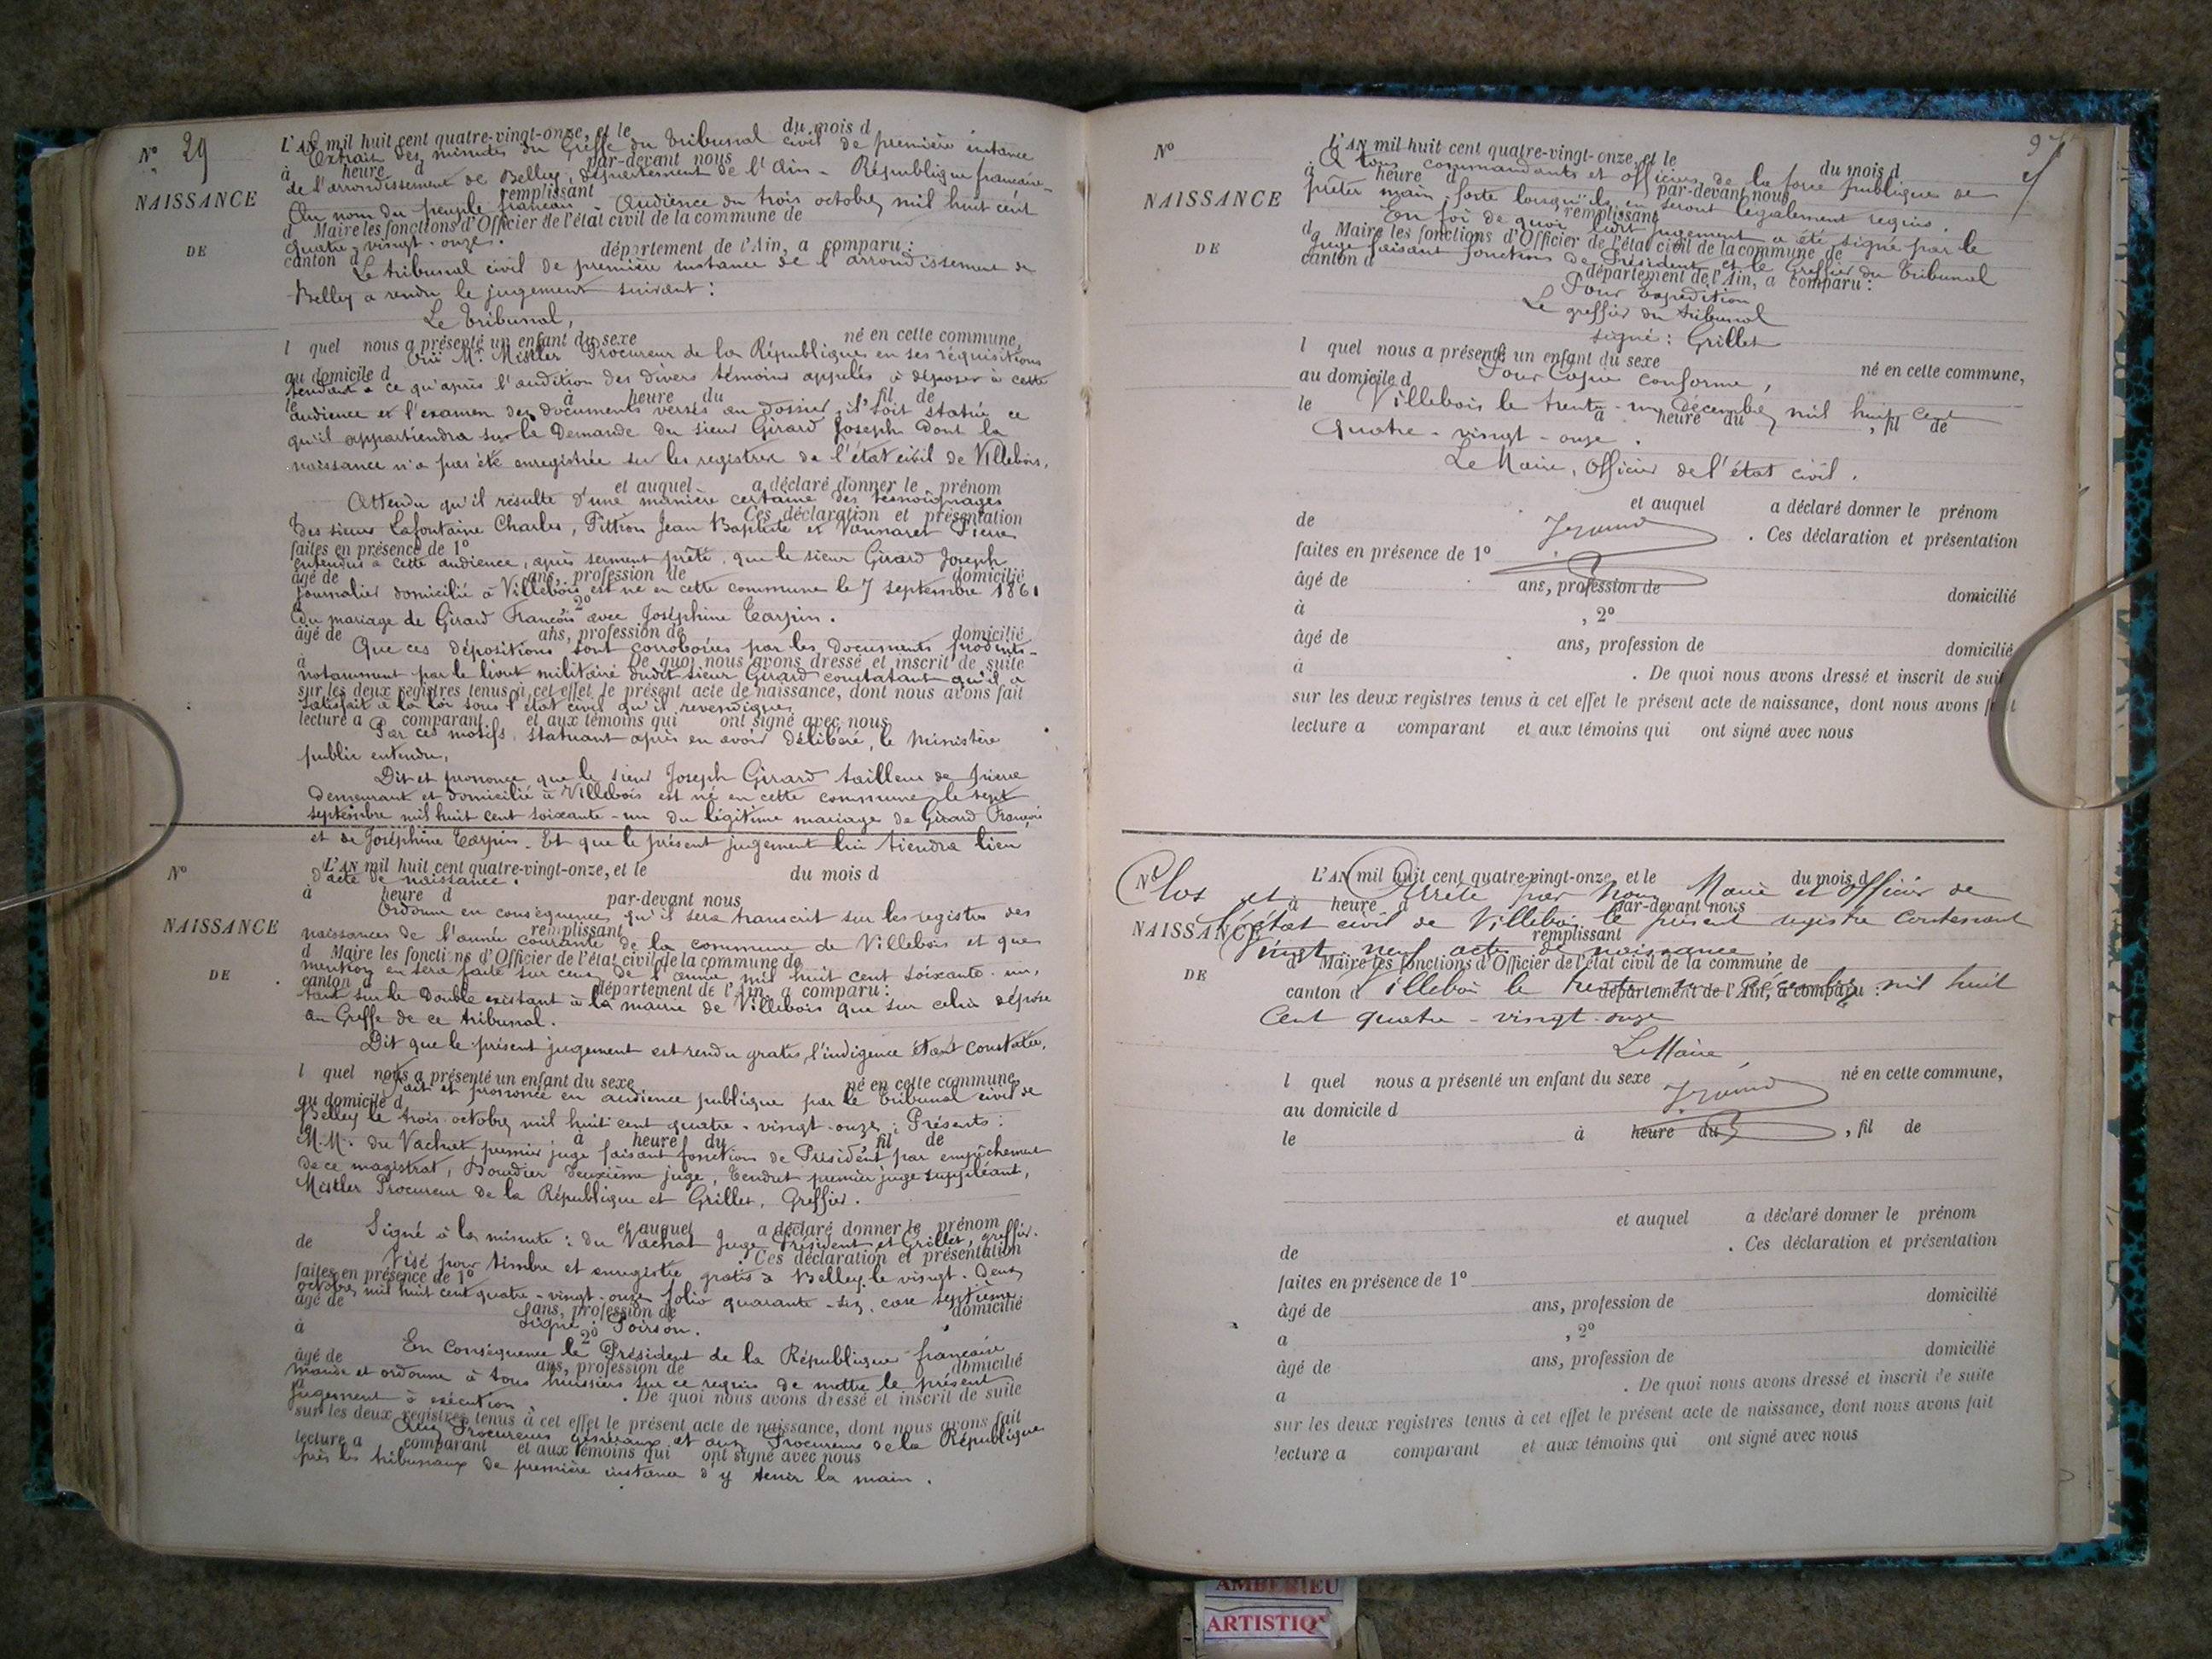 N° 29
NAISSANCE
DE
L'AN mil huit cent quatre-vingt-onze, et le du mois d
Extrait des minutes du Greffe du tribunal civil de première instance
à heure d par-devant nous
de l'arrondissement de Belley, département de l'Ain - République française -
remplissant
Au nom du peuple français - Audience du trois octobre mil huit cent
d Maire les fonctions d'Officier de l'état civil de la commune de
quatre-vingt-onze.
canton d département de l'Ain, a comparu :
Le tribunal civil de première instance de l'arrondissement de
Belley a rendu le jugement suivant :
Le Tribunal,
l quel nous a présenté un enfant du sexe né en cette commune,
Ouï Mr. Mistler Procureur de la République en ses réquisitions
au domicile d
tendant à ce qu'après l'audition des divers témoins appelés à déposer à cette
le à heure du , fil de
audience et l'examen des documents versés au dossier, il soit statué ce
qu'il appartiendra sur la Demande du sieur Girard Joseph dont la
naissance n'a pas été enregistrée sur les registres de l'état civil de Villebois.
et auquel a déclaré donner le prénom
Attendu qu'il résulte d'une manière certaine des témoignages
Ces déclaration et présentation
des sieurs Lafontaine Charles, Pittion Jean Baptiste et Vannaret Pierre
faites en présence de 1°
entendus à cette audience, après serment prêté, que le sieur Girard Joseph
âgé de ans, profession de domicilié
journalier domicilié à Villebois est né en cette commune le 7 septembre 1861
à 2°
du mariage de Girard François avec Joséphine Tarpin.
âgé de ans, profession de domicilié
Que ces dépositions sont corroborées par les documents produits -
à De quoi nous avons dressé et inscrit de suite
notamment par le livret militaire dudit sieur Girard constatant qu'il a
sur les deux registres tenus à cet effet le présent acte de naissance, dont nous avons fait
satisfait à la loi sous l'état civil qu'il revendique
lecture a comparant et aux témoins qui ont signé avec nous
Par ces motifs, statuant après en avoir délibéré, le Ministère
public entendu,
Dit et prononce que le sieur Joseph Girard tailleur de pierre
demeurant et domicilié à Villebois est né en cette commune le sept
septembre mil huit cent soixante-un du légitime mariage de Girard François
et de Joséphine Tarpin. Et que le présent jugement lui tiendra lieu
N°
NAISSANCE
DE
L'AN mil huit cent quatre-vingt-onze, et le du mois d
d'acte de naissance.
à heure d par-devant nous
Ordonne en conséquence qu'il sera transcrit sur les registres des
remplissant
naissances de l'année courante de la commune de Villebois et que
d Maire les fonctions d'Officier de l'état civil de la commune de
mention en sera faite sur ceux de l'année mil huit cent soixante-un,
canton d département de l'Ain, a comparu :
tant sur le double existant à la mairie de Villebois que sur celui déposé
au Greffe de ce tribunal.
Dit que le présent jugement est rendu gratis, l'indigence étant constatée.
l quel nous a présenté un enfant du sexe né en cette commune,
Fait et prononcé en audience publique par le Tribunal civil de
au domicile d
Belley le trois octobre mil huit cent quatre-vingt-onze ; Présents :
le à heure du fil de
M.M. du Vachat premier juge faisant fonctions de Président par empêchement
de ce magistrat, Boudier deuxième juge, Tendret premier juge suppléant,
Mistler Procureur de la République et Grillet, Greffier.
et auquel a déclaré donner le prénom
Signé à la minute : du Vachat Juge Président et Grillet, greffier.
de Ces déclaration et présentation
Visé pour timbre et enregistré gratis à Belley, le vingt-deux
faites en présence de 1°
octobre mil huit cent quatre-vingt-onze folio quarante-six, case septième
âgé de ans, profession de domicilié
Signé : Poirson.
à 2°
En conséquence le Président de la République française
âgé de ans, profession de domicilié
mande et ordonne à tous huissiers sur ce requis de mettre le présent
à . De quoi nous avons dressé et inscrit de suite
jugement à exécution.
sur les deux registres tenus à cet effet le présent acte de naissance, dont nous avons fait
Aux Procureurs généraux et aux Procureurs de la République
lecture a comparant et aux témoins qui ont signé avec nous
près les tribunaux de première instance d'y tenir la main.
N°
NAISSANCE
DE
L'AN mil huit cent quatre-vingt-onze, et le du mois d
A tous commandants et officiers de la force publique de
à heure d par-devant nous
prêter main forte lorsqu'ils en seront légalement requis.
remplissant
En foi de quoi ledit jugement a été signé par le
d Maire les fonctions d'Officier de l'état civil de la commune de
Juge faisant fonctions de Président et le Greffier du Tribunal
canton d département de l'Ain, a comparu :
Pour Expédition
Le greffier du tribunal
signé : Grillet
l quel nous a présenté un enfant du sexe né en cette commune,
Pour Copie conforme,
au domicile d
Villebois le trente-un décembre mil huit cent
le à heure du , fil de
Quatre-vingt-onze.
Le Maire, Officier de l'état civil.
et auquel a déclaré donner le prénom
de . Ces déclaration et présentation
faites en présence de 1°
âgé de ans, profession de domicilié
à , 2°
âgé de ans, profession de domicilié
à . De quoi nous avons dressé et inscrit de suite
sur les deux registres tenus à cet effet le présent acte de naissance, dont nous avons fait
lecture a comparant et aux témoins qui ont signé avec nous
N°
NAISSANCE
DE
L'AN mil huit cent quatre-vingt-onze, et le du mois d
Clos et Arrêté par Nous Maire et Officier de
à heure d par-devant nous
l'état civil de Villebois le présent registre contenant
remplissant
Vingt-neuf actes de naissance.
d Maire les fonctions d'Officier de l'état civil de la commune de
canton d département de l'Ain, a comparu :
Villebois le trente-un décembre mil huit
Cent quatre-vingt-onze
Le Maire,
l quel nous a présenté un enfant du sexe né en cette commune,
au domicile d
le à heure du , fil de
et auquel a déclaré donner le prénom
de . Ces déclaration et présentation
faites en présence de 1°
âgé de ans, profession de domicilié
a , 2°
âgé de ans, profession de domicilié
a . De quoi nous avons dressé et inscrit de suite
sur les deux registres tenus à cet effet le présent acte de naissance, dont nous avons fait
lecture a comparant et aux témoins qui ont signé avec nous
AMBERIEU
ARTISTIQ